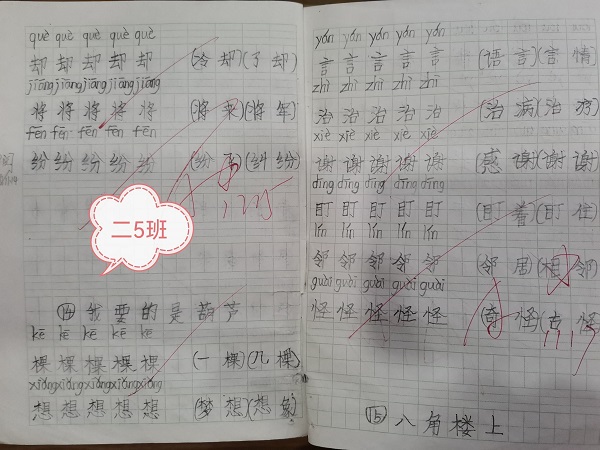 què què què què què
却 却 却 却 却 (冷却)(了却)
jiāng jiāng jiāng jiāng jiāng
将 将 将 将 将 (将来)(将军)
fēn fēn fēn fēn fēn
纷 纷 纷 纷 纷 (纷 (纠纷)
二5班
⑭我要的是葫芦
kē kē kē kē kē
棵 棵 棵 棵 棵 (一棵)(几棵)
xiǎng xiǎng xiǎng xiǎng xiǎng
想 想 想 想 想 (梦想)(想象)
yán yán yán yán yán
言 言 言 言 言 (语言)(言情)
zhì zhì zhì zhì zhì
治 治 治 治 治 (治病)(治疗)
xiè xiè xiè xiè xiè
谢 谢 谢 谢 谢 (感谢)(谢谢)
dīng dīng dīng dīng dīng
盯 盯 盯 盯 盯 (盯着)(盯住)
lín lín lín lín lín
邻 邻 邻 邻 邻 (邻居)(相邻)
guài guài guài guài guài
怪 怪 怪 怪 怪 (奇怪)(古怪)
⑮八角楼上